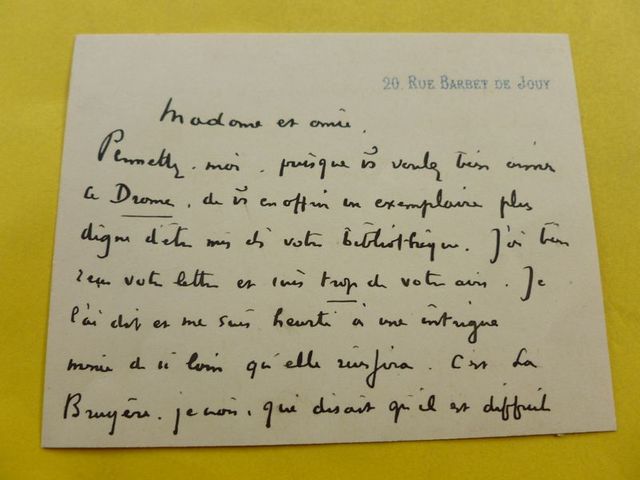 20. RUE BARBET DE JOUY
Madame et amie,
Permettez-moi, puisque vs voulez bien aimer
ce Drame, de vs en offrir un exemplaire plus
digne d'être mis ds votre Bibliothèque. J'ai bien
reçu votre lettre et suis trop de votre avis. Je
l'ai dit et me suis heurté à une intrigue
menée de si loin qu'elle réussira. C'est La
Bruyère, je crois, qui disait qu'il est difficile